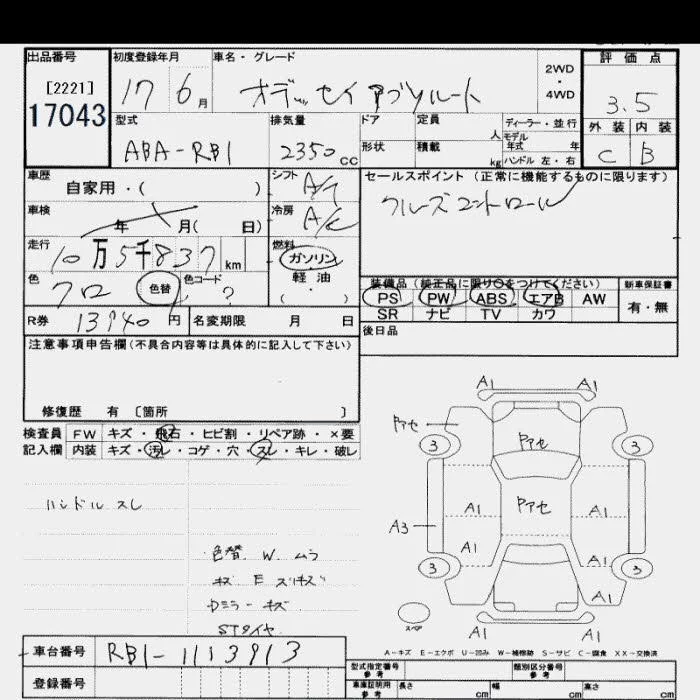 出品番号
[2221]
17043
初度登録年月
17 6月
車名・グレード
オデッセイ アブソルート
2WD
・
4WD
評価点
3.5
外装 内装
C B
型式
ABA-RB1
排気量
2350cc
ドア
形状
定員 人
積載 kg
ディーラー・並行
モデル年式 年
ハンドル 左・右
車歴
自家用・( )
シフト A/T
車検 年 月( 日)
冷房 A/C
走行
10万5千837km
燃料
ガソリン
軽油
( )
色
クロ 色替
色コード ?
R券 13940円
名変期限 月 日
セールスポイント(正常に機能するものに限ります)
クルーズコントロール
装備品(純正品に限り○をつけてください)
PS PW ABS エアB AW
SR ナビ TV カワ
新車保証書
有・無
後日品
注意事項申告欄(不具合内容等は具体的に記入して下さい)
修復歴 有 〔箇所 〕
検査員
記入欄
FW キズ・飛石・ヒビ割・リペア跡・×要
内装 キズ・汚レ・コゲ・穴・スレ・キレ・破レ
ハンドルスレ
色替 W ムラ
キズ E スリキズ
Dミラーキズ
STタイヤ
A1 A1
アセ
3 3
アセ
アセ
A1 A1
A3
A1 A1
3 3
A1
スペア
A1 A1
A-キズ E-エクボ U-凹み W-補修跡 S-サビ C-腐食 XX-交換済
車台番号 RB1-1113913
登録番号
型式指定番号
参考
類別区分番号
参考
車庫証明用
参考
長さ cm 幅 cm 高さ cm